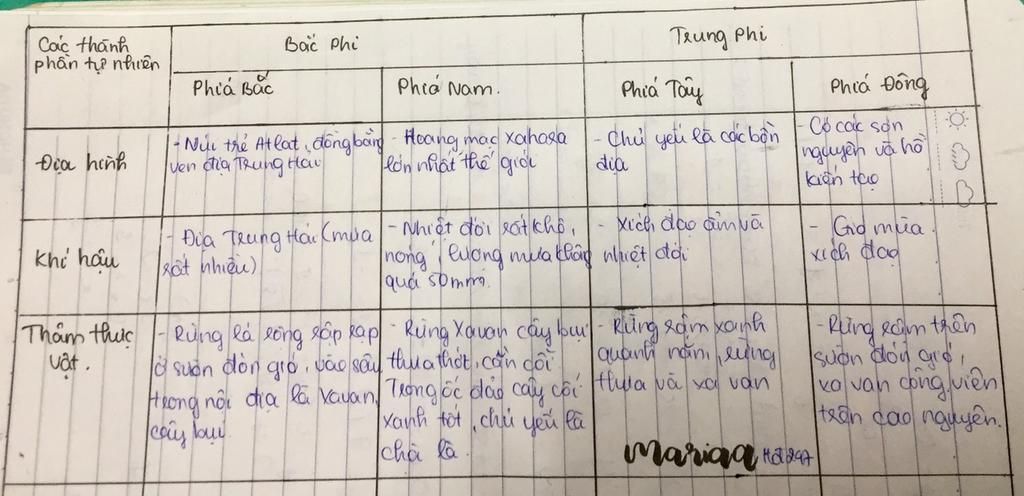 Các thành
phần tự nhiên
Bắc Phi
Trung Phi
Phía Bắc
Phía Nam.
Phía Tây
Phía Đông
Địa hình
- Núi trẻ Atlat, đồng bằng
ven địa Trung Hải
- Hoang mạc xahara
lớn nhất thế giới
- Chủ yếu là các bồn
địa
- Có các sơn
nguyên và hồ
kiến tạo
Khí hậu
- Địa Trung Hải (mưa
rất nhiều)
- Nhiệt đới rất khô,
nóng, lượng mưa không
quá 50mm.
- Xích đạo ẩm và
nhiệt đới
- Gió mùa
xích đạo
Thảm thực
vật.
- Rừng lá rộng rập rạp
ở sườn đón gió, vào sâu
trong nội địa là xavan,
cây bụi
- Rừng xavan cây bụi
thưa thớt, cằn cỗi
Trong ốc đảo cây cối
xanh tốt, chủ yếu là
chà là
- Rừng rậm xanh
quanh năm, rừng
thưa và xa van
- Rừng rậm trên
sườn đón gió,
xa van công viên
trên cao nguyên.
mariaa Hd247